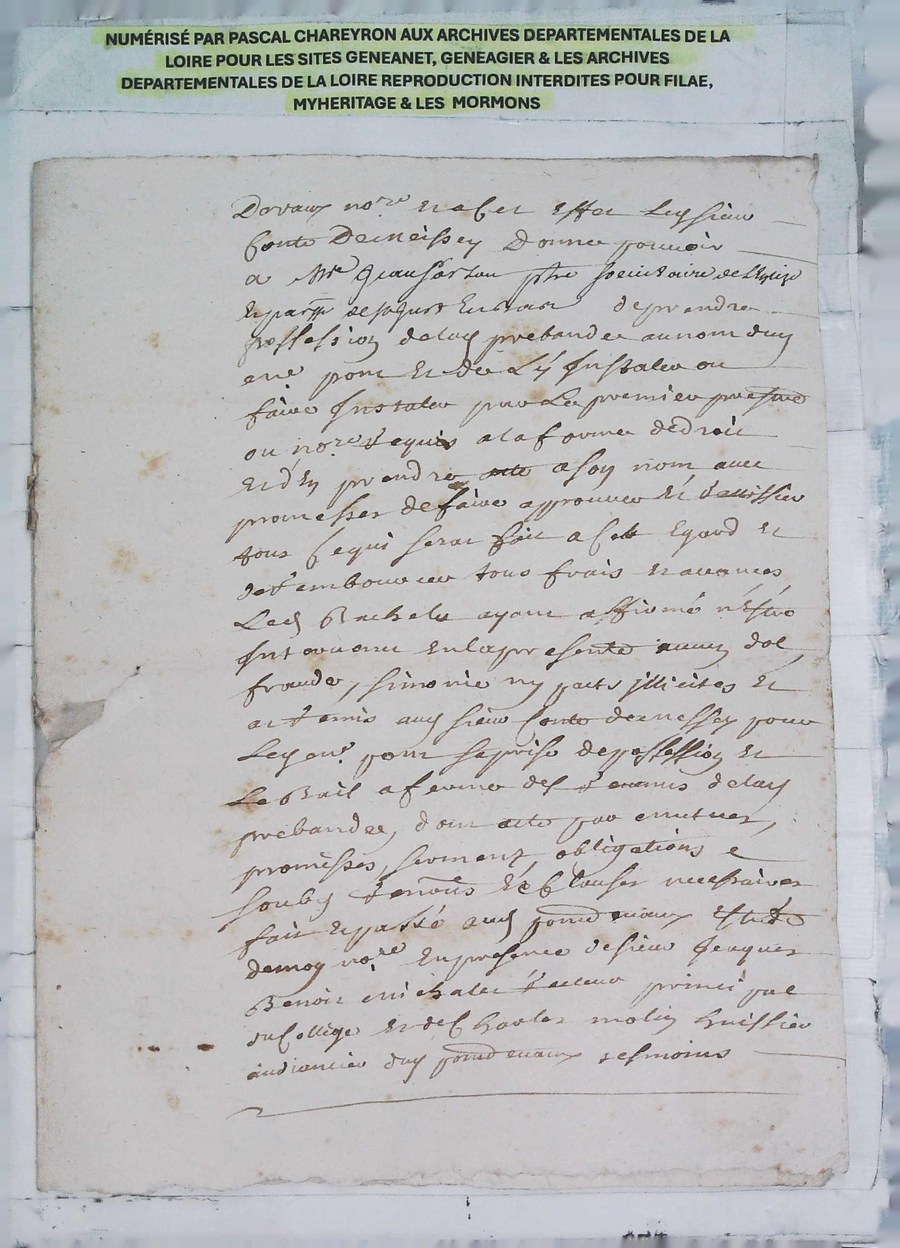 NUMÉRISÉ PAR PASCAL CHAREYRON AUX ARCHIVES DEPARTEMENTALES DE LA
LOIRE POUR LES SITES GENEANET, GENEAGIER & LES ARCHIVES
DEPARTEMENTALES DE LA LOIRE REPRODUCTION INTERDITES POUR FILAE,
MYHERITAGE & LES MORMONS
no.re et a cet effet led sieur
Donne pouvoir
a Mre ptre de l'eglize
de prendre
possession de lad prebande au nom dud
pour et de l'y Instaler ou
faire Instaler par le premier prestre
ou no.re requis a la forme de droit
et d'en prendre acte a son nom avec
promesses de faire approuver et
tous ce qui sera fait a cet egard et
de rembourcer tous frais et avances
Led Bachelu ayant affirmé n'estre
Intervenu en la presente aucun dol
fraude, simonie ny pacts illicites et
a remis aud sieur pour
pour sa prise de possession et
le Bail a ferme des de lad
prebande, dont acte par mutues,
promesses, serment, obligations e
soubs et clauses necessaires
fait et passé aud
de moy no.re En presence de sieur Jacques
Benoit principal
du College et de Charles molin huissier
audiancier dud tesmoins